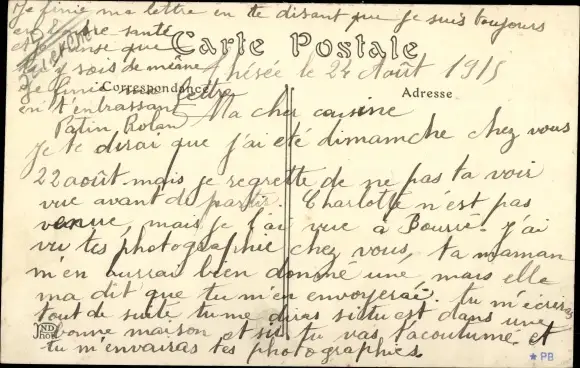 Je finie ma lettre en te disant que je suis toujours
en santé
que
sois de même
Je finie ma lettre
en t'enbrassant
Patin Rolan
Carte Postale
Correspondance
Adresse
Thésée le 24 Août 1915
Ma cher cousine
Je te dirai que j'ai été dimamche chez vous
22 août mais je regrette de ne pas ta voir
vue avant de partir. Charlotte n'est pas
venue, mais je l'ai vue à Bourré. j'ai
vu tes photographie chez vous, ta maman
m'en aurrai bien donné une, mais elle
ma dit que tu m'en envoyerai. tu m'écriras
tout de suite tu me diras si tu est dans une
bonne maison et si tu vas t'acoutumé et
tu m'envairas tes photographies.
ND
Phot
PB